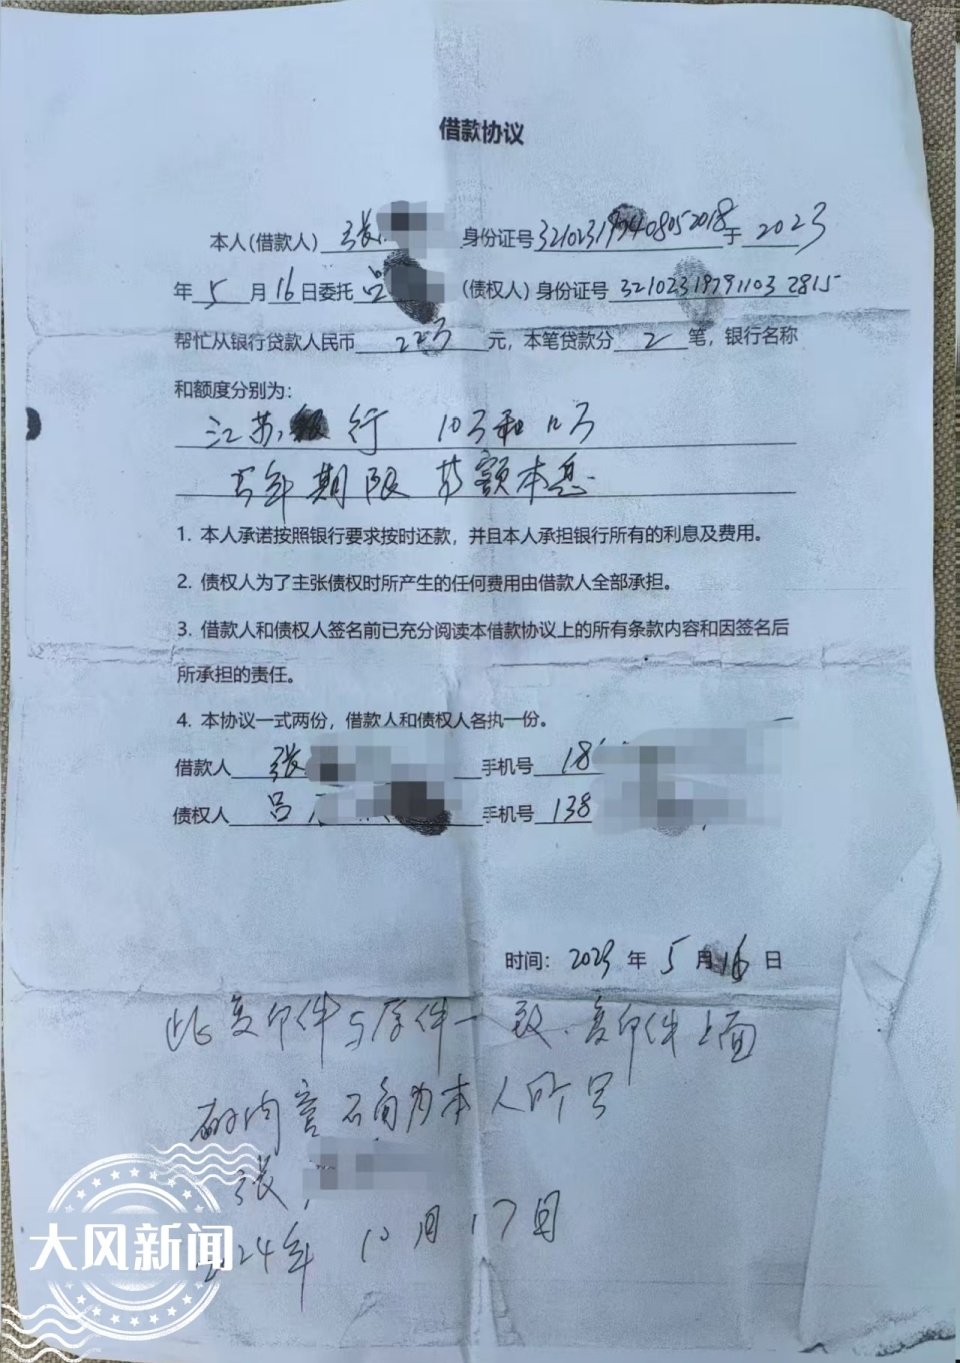 借款协议
本人(借款人) 张 身份证号 于 2023
年 5 月 16 日委托 吕 (债权人) 身份证号 321023197911032815
帮忙从银行贷款人民币 22万 元，本笔贷款分 2 笔，银行名称
和额度分别为：
江苏银行 10万和12万
年期限 等额本息
1. 本人承诺按照银行要求按时还款，并且本人承担银行所有的利息及费用。
2. 债权人为了主张债权时所产生的任何费用由借款人全部承担。
3. 借款人和债权人签名前已充分阅读本借款协议上的所有条款内容和因签名后
所承担的责任。
4. 本协议一式两份，借款人和债权人各执一份。
借款人 张 手机号 18
债权人 吕 手机号 138
时间： 2023 年 5 月 16 日
此复印件与原件一致，复印件上面
的内容 为本人所写
张
24年 10月17日
大风新闻